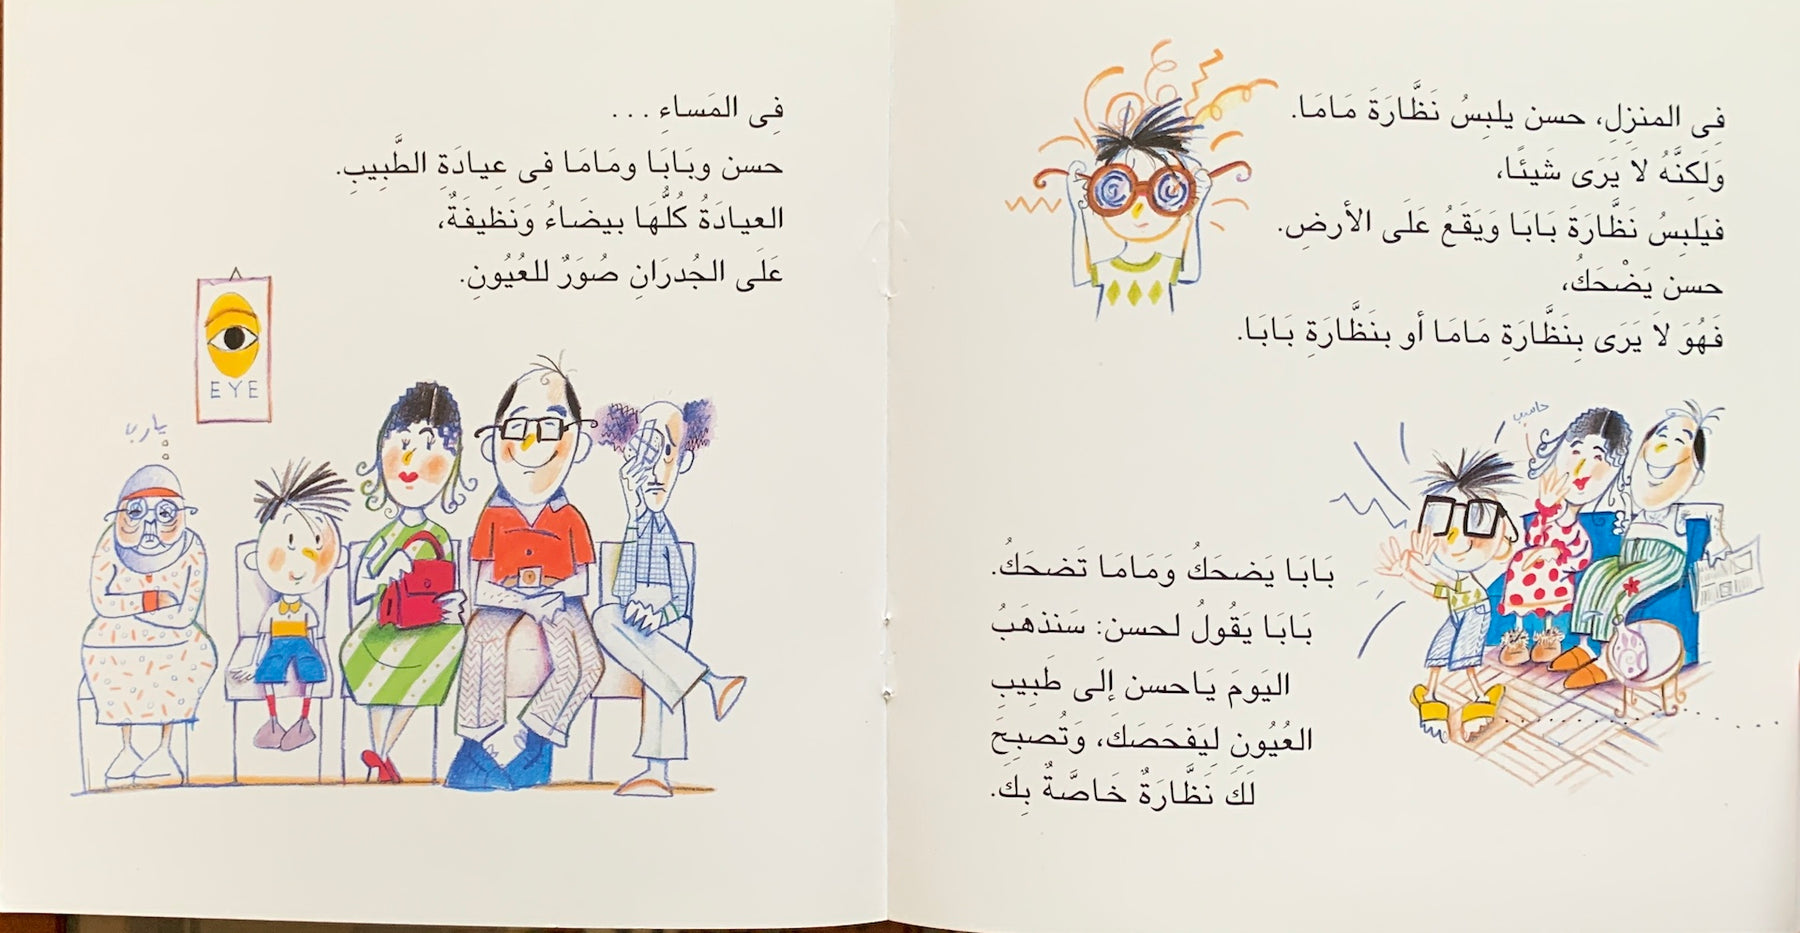 فِى المنزِلِ، حسن يلبِسُ نَظَّارَةَ مَامَا.
وَلَكِنَّهُ لاَ يَرَى شَيئًا،
فيَلبِسُ نَظَّارَةَ بَابَا وَيَقَعُ عَلَى الأرضِ.
حسن يَضْحَكُ،
فَهُوَ لاَ يَرَى بِنَظَّارَةِ مَامَا أو بنَظَّارَةِ بَابَا.
حاسب
بَابَا يَضحَكُ وَمَامَا تَضحَكُ.
بَابَا يَقُولُ لحسن: سَنَذهَبُ
اليَومَ يَاحسن إلَى طَبِيبِ
العُيُونِ لِيَفحَصَكَ، وَتُصبِحَ
لَكَ نَظَّارَةٌ خَاصَّةٌ بِك.
فِى المَساءِ ...
حسن وبَابَا ومَامَا فِى عِيادَةِ الطَّبِيبِ.
العيادَةُ كُلُّهَا بيضَاءُ وَنَظيفَةٌ،
عَلَى الجُدرَانِ صُوَرٌ للعُيُونِ.
EYE
يارب